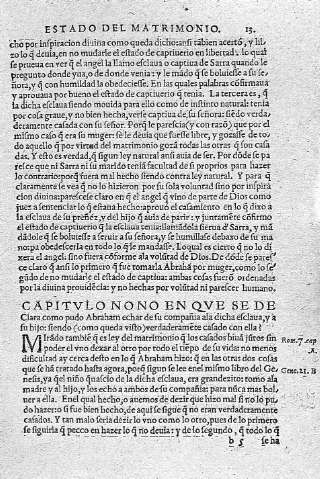 ESTADO DEL MATRIMONIO. 13.
cho por inspiracion diuina como queda dicho: ansi tãbien acertò, y hi
zo lo q̃ deuia, en no mudarle el estado de captiuerio en libertad: lo qual
se prueua en ver q̃ el angel la llamo esclaua o captiua de Sarra quando le
pregunto donde yua, o de donde venia: y le mãdo q̃ se boluiesse a su se
ñora, y q̃ con humildad la obedeciesse. En las quales palabras cõfirmaua
y aprouaua por bueno el estado de captiuerio q̃ tenia. La tercera es, q̃
la dicha esclaua siendo mouida para ello como de instinto natural: tenia
por cosa graue, y no bien hecha, verse captiua de su señora: siẽdo verda
deramente casada con su señor. Porq̃ le parescia (y con razõ) que por el
mismo caso q̃ era su muger: se le deuia que fuesse libre, y gozasse de to-
do aquello q̃ por virtud del matrimonio gozã todas las otras q̃ son casa
das. Y esto es verdad, q̃ segun ley natural ansi auia de ser. Por dõde se pa
resce que ni Sarra ni su marido teniã facultad de si proprios para hazer
lo contrario: porq̃ fuera mal hecho siendo contra ley natural. Y para q̃
claramente se vea q̃ no lo hizieron por su sola voluntad sino por inspira
cion diuina: paresce se claro en q̃ el angel q̃ vino de parte de Dios como
juez a sentenciar lo q̃ estaua hecho aprouò el casamiento en lo q̃ dixo a
la esclaua de su preñez, y del hijo q̃ auia de parir: y juntamẽte cõfirmo
el estado de captiuerio q̃ la esclaua tenia llamãdola sierua d̃ Sarra, y mã
dãdole q̃ se boluiesse a seruir a su señora, y se humillasse debaxo de su ma
no: pa obedescerla en todo lo q̃ le mandasse. Loqual es cierto q̃ no lo di
xera el angel: sino fuera cõforme ala volũtad de Dios. De dõde se pares
ce claro q̃ ansi lo primero q̃ fue tomarla Abrahã por muger, como lo se
gũdo de no mudarle el estado de captiua: ambas cosas fuerõ ordenadas
por la diuina prouidẽcia: y no hechas por volũtad ni parescer humano.
CAPITVLO NONO EN QVE SE DE
Clara como pudo Abraham echar de su compañia ala dicha esclaua, y a
su hijo: siendo (como queda visto) verdaderamẽte casado con ella?
MIrãdo tambiẽ q̃ es ley del matrimonio q̃ los casados biuã jũtos sin
poder el vno dexar al otro por todo el tiẽpo de su vida: no menos
dificultad ay cerca desto en lo q̃ Abraham hizo: q̃ en las otras dos cosas
que se hã tratado hasta agora, porq̃ sigun se lee enel mismo libro del Ge
nesis, ya q̃el niño q̃ nascio de la dicha esclaua, era grandezito: tomo ala
madre y al hijo, y los echò a ambos de su compañia: para nũca mas bol-
uer a ella. Enel qual hecho, o auemos de dezir que hizo mal si no lo pu
do hazer: o si fue bien hecho, de aqui se sigue q̃ no eran verdaderamente
casados. Y tan malo seria dezir lo vno como lo otro, pues de lo primero
se siguiria q̃ pecco en hazer lo q̃ no deuia: y de lo segundo, q̃ todo lo q̃
Rom. 7. cap
A.
Gene. 21. B
b 5 se ha